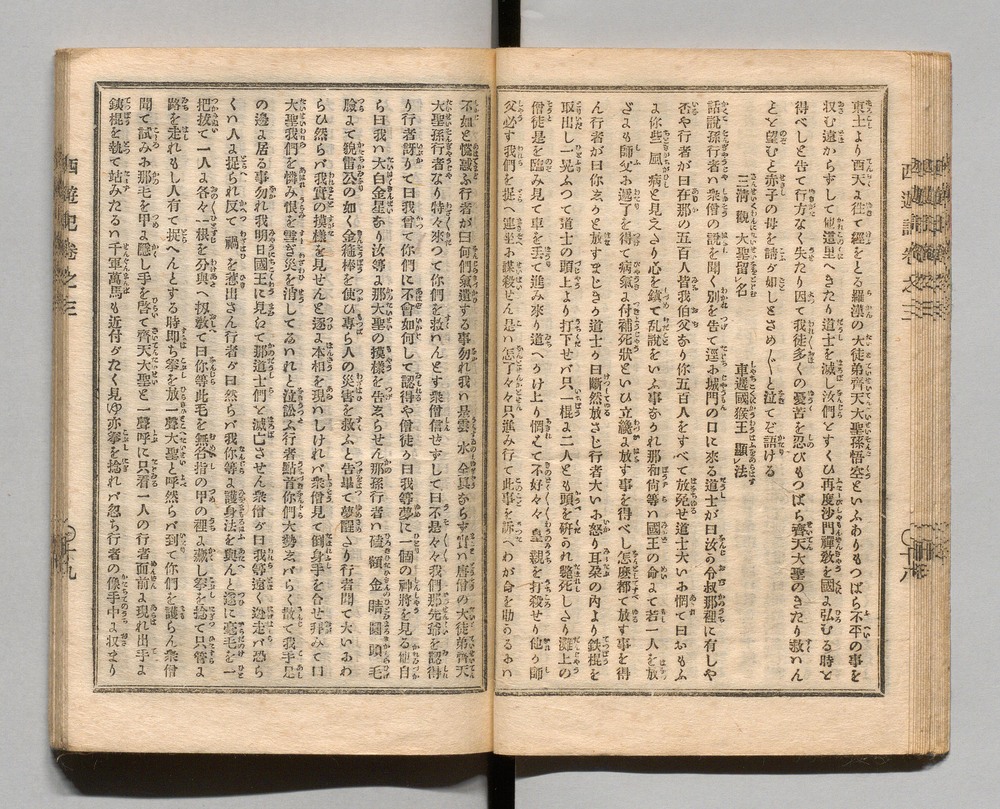 東土より西天に往て經をとる羅漢の大徒弟齊天大聖孫悟空といふありもつぱら不平の事を
収む遠からずして此遣里へきたり道士を滅し汝們をすくひ再度沙門禪教を國に弘むる時を
得べしと告て行方なく失たり因て我徒多くの憂苦を忍びもつぱら齊天大聖のきたり救はん
とを望むと赤子の母を請が如しとさめ〴〵と泣てぞ語ける
三清觀大聖留名
車遲國猴王顯法
話說孫行者ハ衆僧の說を聞く別を告て逕に城門の口に來る道士が曰汝の令叔那裡に有しや
否や行者が曰在那の五百人皆我伯父なり你五百人をすべて放死せ道士大いに惘て曰おもふ
に你些風病と見えたり心を鎭て乱說をいふ事なかれ那和尙等ハ國王の命にて若一人を放
ざにも師父に遞了を得て病氣に付補死狀といひ立纔に放す事を得べし怎麽都て放す事を得
ん行者が曰你ゑりと放すまじきか道士が曰斷然放さじ行者大いに怒り耳朶の内より鉄棍を
取出し一晃ふつて道士の頭上より打下せバ只一棍に二人とも頭を砕かれ斃死したり灘上の
僧徒是を臨み見て車を丢て進み來り道へうけ上り惘て不好々々皇親を打殺せり他が師
父必す我們を捉へ連坐に謀殺せん是ハ怎了々々只進み行て此事を訴へわが命を助かるにハ
不如と慌惑ふ行者が曰何們氣遣する事勿れ我ハ是雲水全眞ならず實ハ唐僧の大徒弟齊天
大聖孫行者なり特々來つて你們を救はんとす衆僧信せずして曰不是々々我們那先爺を認得
り行者訝りて曰我曾て你們に不會如何して認得や僧徒が曰我等夢に一個の神將を見る他自
ら曰我ハ大白金星なり汝等に那大聖の模樣を告知らせん那孫行者ハ磕額金睛圓頭毛
臉にて貌雷公の如く金箍棒を使ひ專ら人の災害を救ふと告畢て夢醒たり行者聞て大いにわ
らひ然らバ我實の摸樣を見せんと遂に本相を現ハしければ衆僧見て倒身手を合せ拜みて曰
大聖我們を憐み恨を雪ぎ災を消してたハれと泣訟ふ行者點首你們大勢たバらく散て我手足
の邊に居る事勿れ我明日國王に見ねて那道士們を滅亡させん衆僧が曰我等遠く逃走バ恐ら
くハ人に捉られ反て禍を惹出さん行者が曰然らバ我你等に護身法を與んと遂に毫毛を一
把拔て一人に各々一根を分與へ扨教て曰你等此毛を無名指の甲の裡に藏し拳を捻て只管に
路を走れもし人有て捉へんとする時卽ち拳を放一聲大聖と呼然らバ到て你們を護らん衆僧
聞て試みに那毛を甲に隱し手を啓て齊天大聖と一聲呼に只看一人の行者面前に現れ出手に
鉄棍を執て站みたるハ千軍萬馬も近付がたく見ゆ亦拳を捻れバ忽ち行者の像手中に収まり
西遊記卷之三
十九